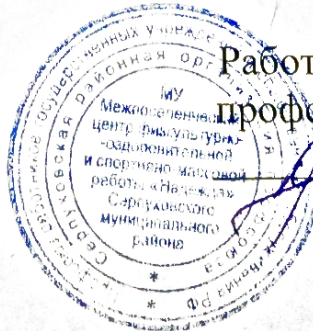 Работ
профе
МУ
Межпоселенческий
центр физкультурно-
-оздоровительной
и спортивно-массовой
работы «Надежда»
Серпуховского
муниципального
района
Серпуховская районная орг
государственных учрежде
РФ